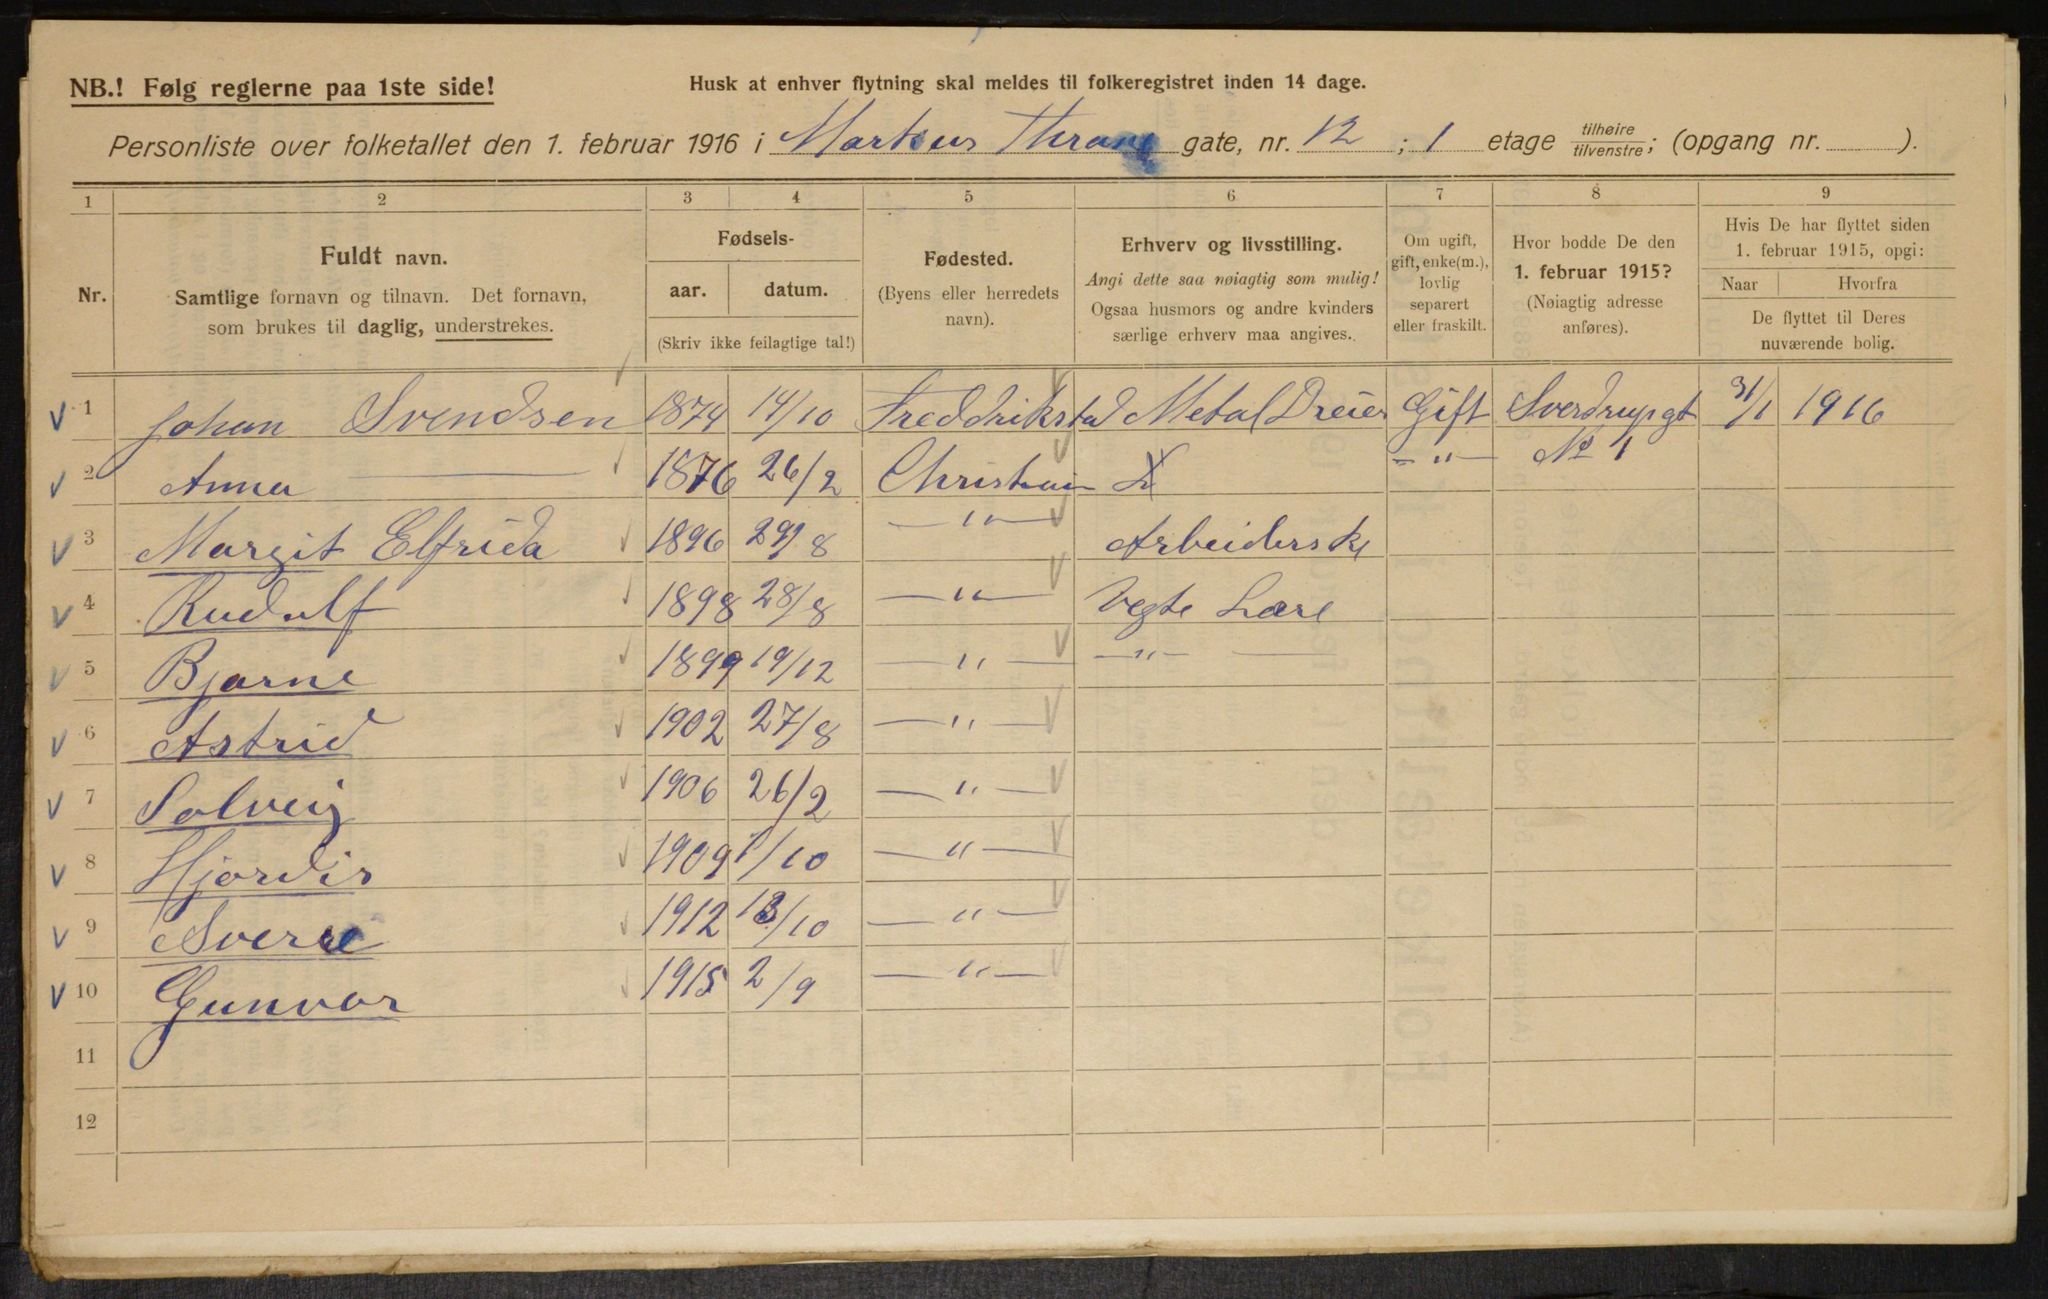 NB.! Følg reglerne paa 1ste side!
Husk at enhver flytning skal meldes til folkeregistret inden 14 dage.
Personliste over folketallet den 1. februar 1916 i Markus Thrane gate, nr. 12 ; 1 etage tilhøire/tilvenstre; (opgang nr. ).
1 2 3 4 5 6 7 8 9
Nr.
Fuldt navn.
Samtlige fornavn og tilnavn. Det fornavn,
som brukes til daglig, understrekes.
Fødsels-
aar. datum.
(Skriv ikke feilagtige tal!)
Fødested.
(Byens eller herredets
navn).
Erhverv og livsstilling.
Angi dette saa nøiagtig som mulig!
Ogsaa husmors og andre kvinders
særlige erhverv maa angives.
Om ugift,
gift, enke(m.),
lovlig
separert
eller fraskilt.
Hvor bodde De den
1. februar 1915?
(Nøiagtig adresse
anføres).
Hvis De har flyttet siden
1. februar 1915, opgi:
Naar Hvorfra
De flyttet til Deres
nuværende bolig.
1 Johan Svendsen 1874 14/10 Freddrikstad Metal Dreier Gift Sverdrupgt 31/1 1916
2 Anna — 1876 26/2 Christiania — " — No 1
3 Margit Elfrida 1896 29/8 — " — Arbeiderske
4 Rudolf 1898 28/8 — " — Vegte Lære
5 Bjarne 1899 19/12 — " — — " —
6 Astrid 1902 27/8 — " —
7 Solveig 1906 26/2 — " —
8 Hjordis 1909 1/10 — " —
9 Sverre 1912 13/10 — " —
10 Gunvor 1915 2/9 — " —
11
12